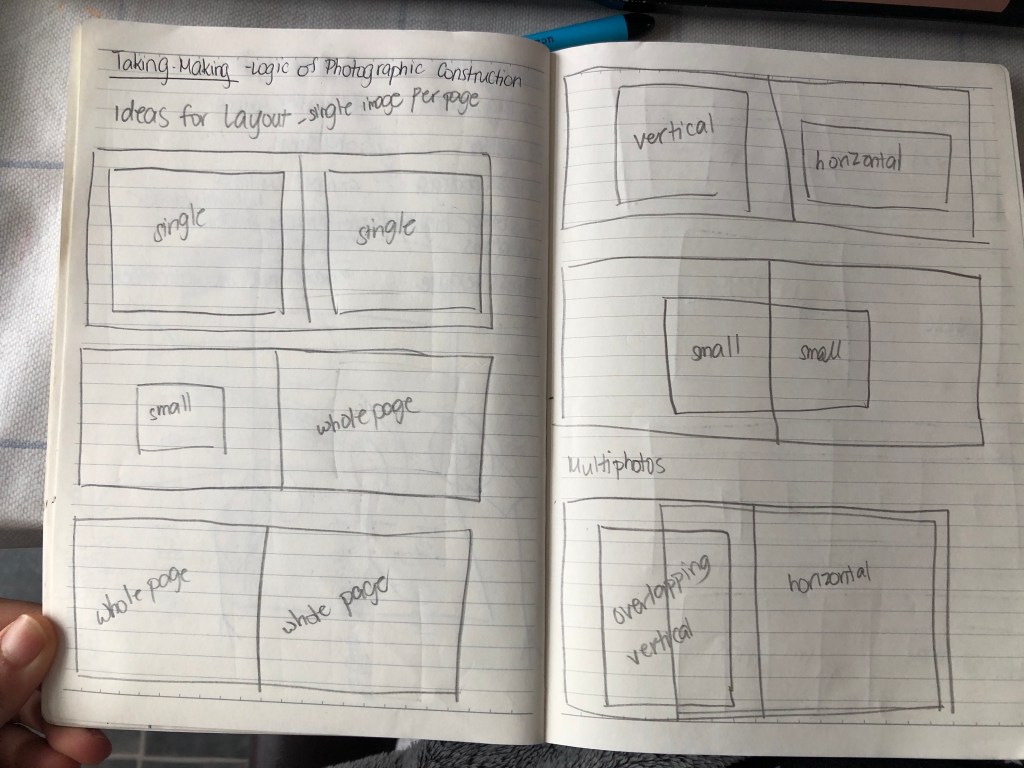 Taking-Making - Logic of Photographic Construction
Ideas for Layout - single image per page
single
single
small
whole page
whole page
whole page
vertical
horizontal
small
small
Multiphotos
overlapping
vertical
horizontal